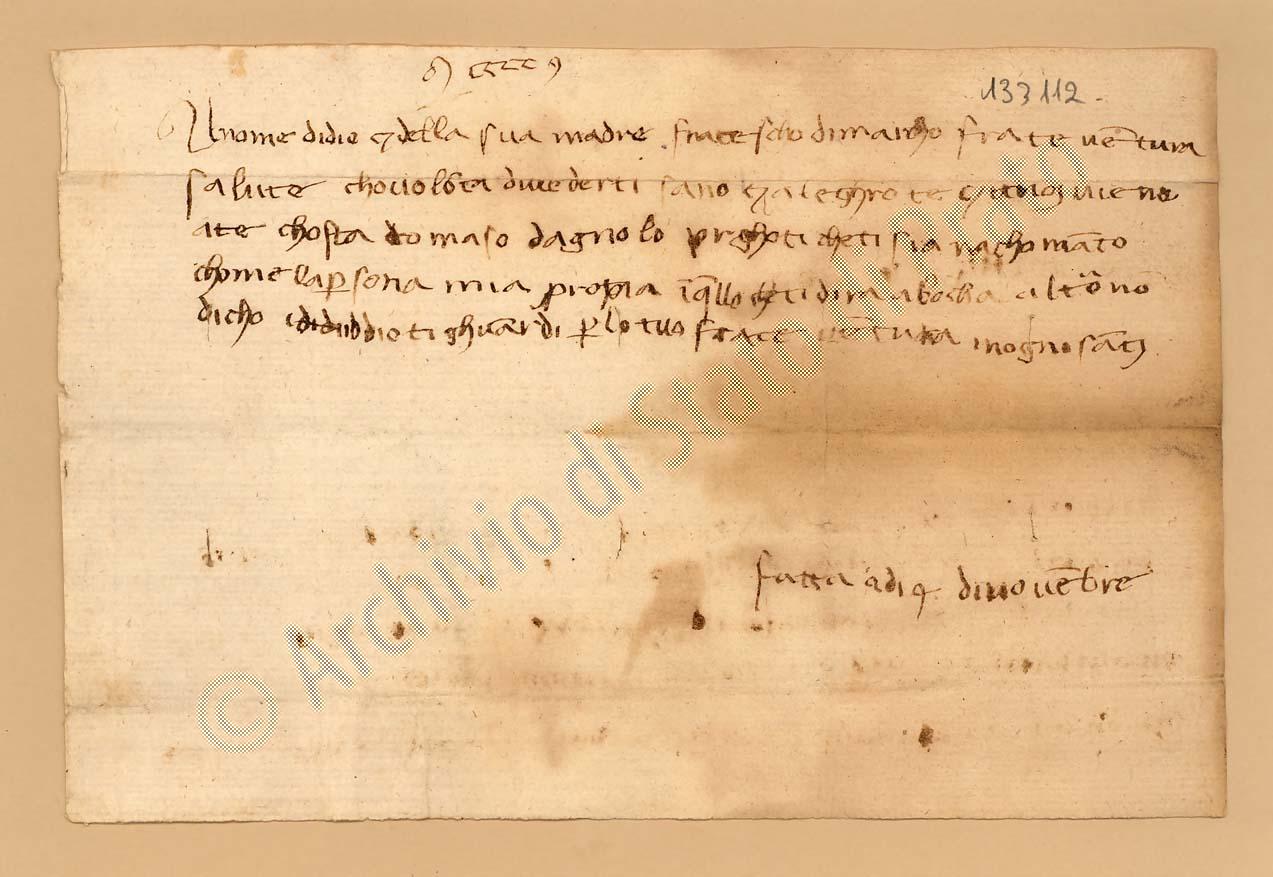 133112.
Nnome didio e della sua madre. Fracescho dimarcho frate ventura
salute cho volōta divederti sano e aleghro te e tuoj viene
ate chosta tomaso dagnolo preghoti cheti sia rachomādato
chome la persona mia propia i qllo che ti dira abocha altro nō
dicho iddio ti ghuardi per lo tuo frate vētura inognisātj
fatta adi 9 dinovēbre
© Archivio di Stato di Prato